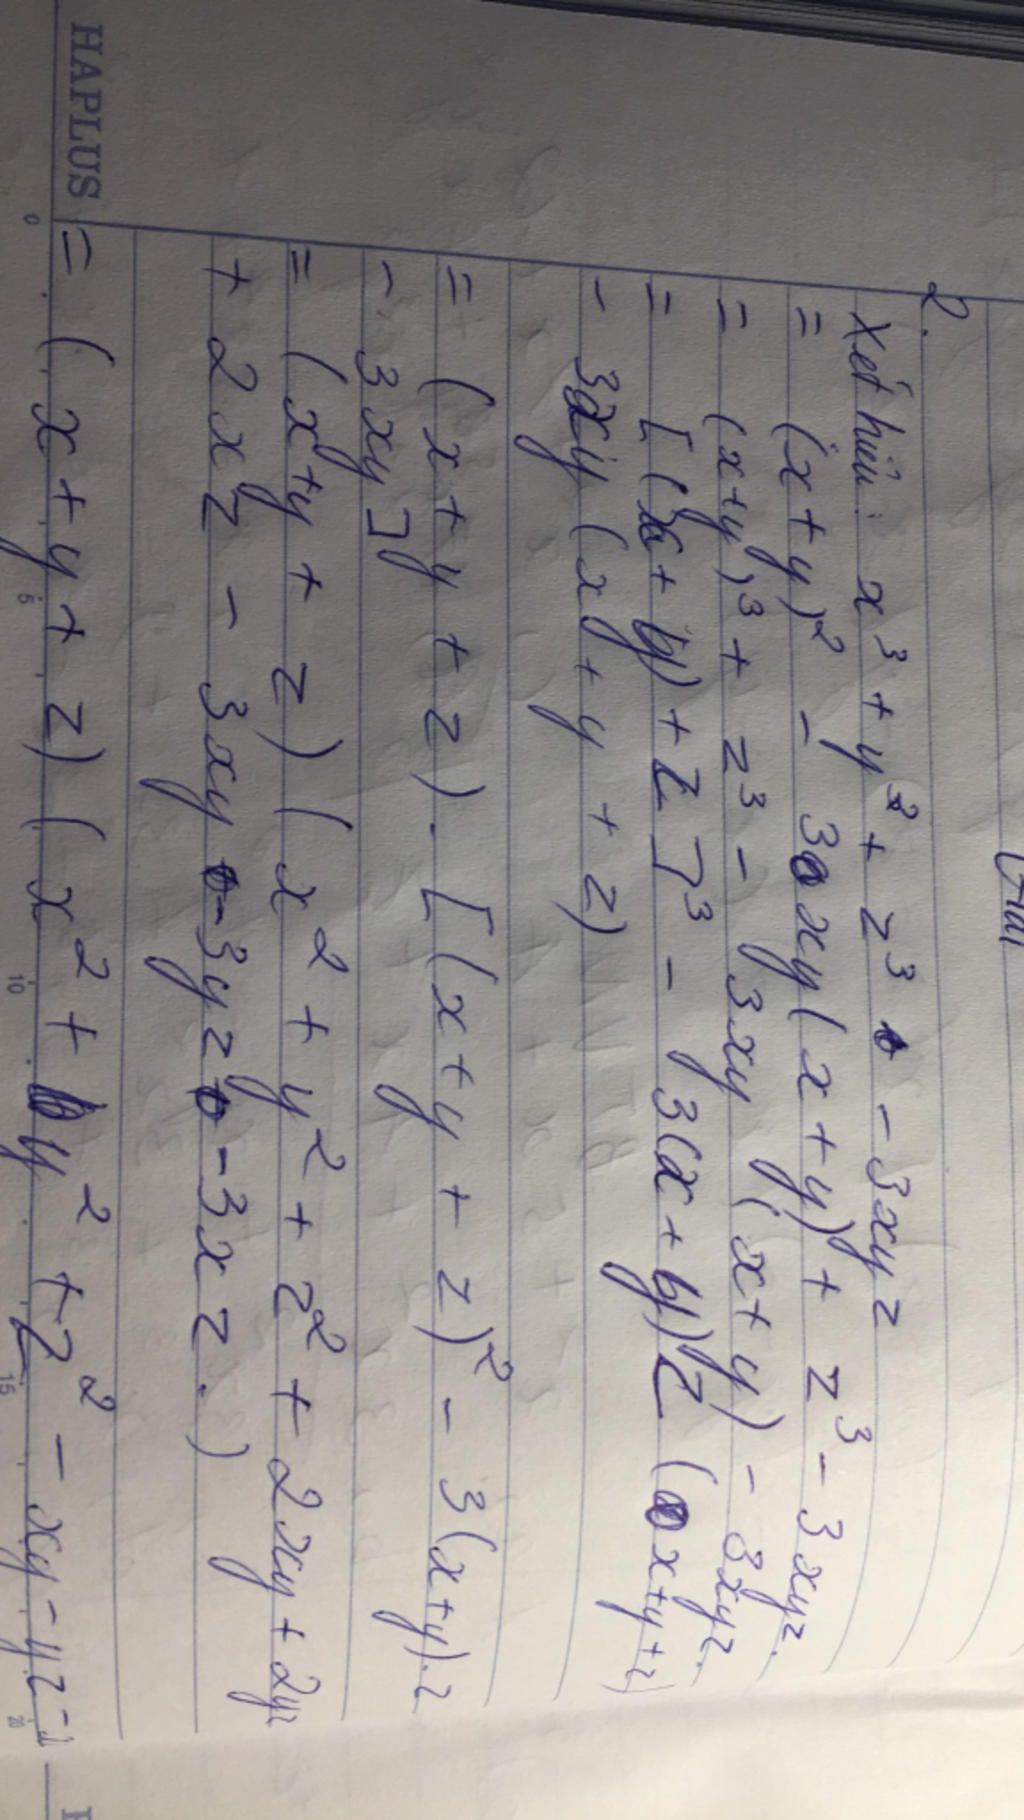 2.
Xét hiệu: x³ + y³ + z³ - 3xyz
= (x+y)² - 3xy(x+y) + z³ - 3xyz.
= (x+y)³ + z³ - 3xy(x+y) - 3xyz.
= [(x+y)+z]³ - 3(x+y)z(x+y+z)
- 3xy(x+y+z)
= (x+y+z).[(x+y+z)² - 3(x+y).z
- 3xy]
= (x+y+z)(x²+y²+z²+2xy+2yz
+ 2xz - 3xy - 3yz - 3xz.)
= (x+y+z)(x²+y²+z²-xy-yz-
HAPLUS
0 5 10 15 20